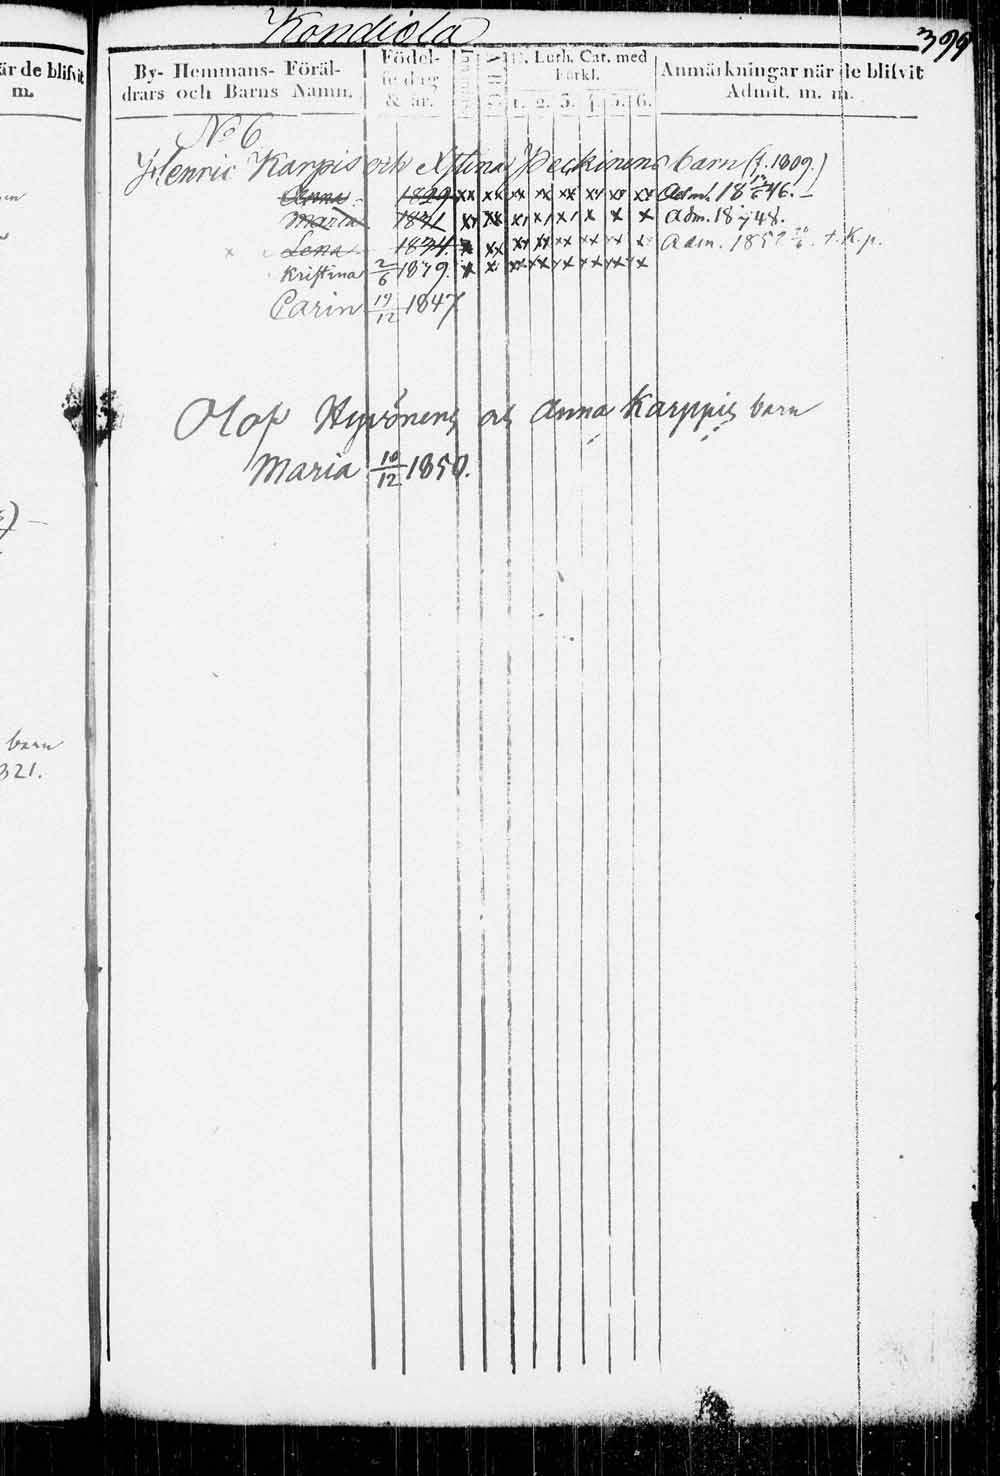 Kondiola
399
är de blifvit
m.
By- Hemmans- Föräl-
drars och Barns Namn.
Födel-
se dag
& år.
D. Luth. Cat. med
Förkl.
1. 2. 3. 4. 5. 6.
Anmärkningar när de blifvit
Admit. m. m.
No 6
Henric Karpis och Xstina Peckinens barn (f. 1809.)
Anna 1829 Adm. 18 46.
Maria 1831 Adm. 18 48.
Lena 1834. Adm. 1852 t. K. p.
Kristina 2/6 1839.
Carin 19/12 1847
Olof Hyvönens och Anna Karppis barn
Maria 10/12 1850.
barn
321.